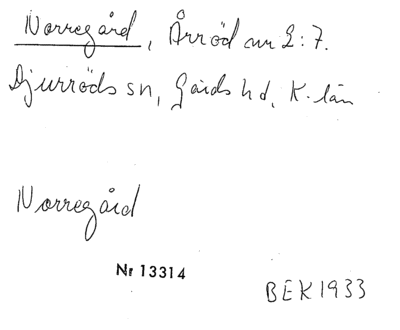 Norregård, Årröd nr 2:7.
Djurröds sn, Gärds hd, K. län
Norregård
Nr 13314
BEK 1933